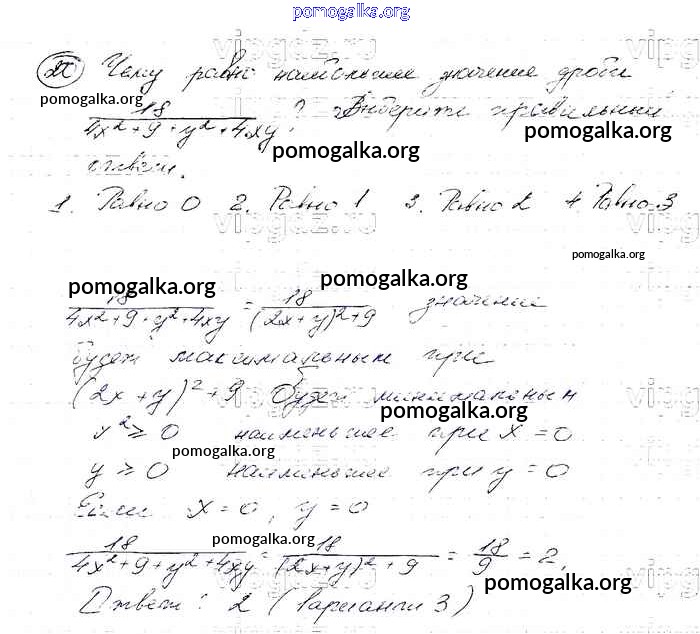 pomogalka.org
Чему равно наибольшее значение дроби
pomogalka.org
18 / 4x² + 9 + y² + 4xy ? Выберите правильный
pomogalka.org
pomogalka.org
ответ.
1. Равно 0 2. Равно 1 3. Равно 2 4 Равно 3
pomogalka.org
pomogalka.org
pomogalka.org
18 / 4x² + 9 + y² + 4xy = 18 / (2x + y)² + 9 значение
будет максимальным при
(2x + y)² + 9 будет минимальным
pomogalka.org
x² ≥ 0 наименьшее при x = 0
pomogalka.org
y ≥ 0 наименьшее при y = 0
Если x = 0, y = 0
pomogalka.org
18 / 4x² + 9 + y² + 4xy = 18 / (2x + y)² + 9 = 18 / 9 = 2,
pomogalka.org
Ответ: 2 (вариант 3)